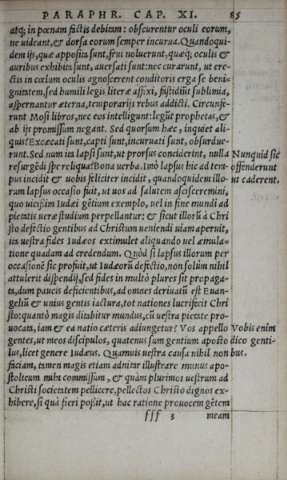 PARAPHR. CAP. XI. 85
atq; in pœnam fictis debitam: obscurentur oculi eorum,
ne uideant, & dorsa eorum semper incurua. Quandoqui-
dem ijs, quæ apposita sunt, frui noluerunt, quæq; oculis &
auribus exhibita sunt, auersati sunt: nec curarunt, ut ere-
ctis in cœlum oculis agnoscerent conditoris erga se beni-
gnitatem, sed humili legis literæ affixi, fastidiũt sublimia,
aspernantur æterna, temporarijs rebus addicti. Circunfe-
runt Mosi libros, nec eos intelligunt: legũt prophetas, &
ab ijs promissum negant. Sed quorsum hæc, inquiet ali-
quis? Excæcati sunt, capti sunt, incuruati sunt, obsurdue-
runt. Sed num ita lapsi sunt, ut prorsus conciderint, nulla
resurgẽdi spe reliqua? Bona uerba. Imò lapsus hic ad tem-
pus incidit & uobis feliciter incidit, quandoquidem illo-
rum lapsus occasio fuit, ut uos ad salutem ascisceremini,
quo uicissim Iudæi gẽtium exemplo, uel in fine mundi ad
pietatis ueræ studium perpellantur: & sicut illorũ à Chri
sto defectio gentibus ad Christum ueniendi uiam aperuit,
ita uestra fides Iudæos extimulet aliquando uel æmula-
tione quadam ad credendum. Quòd si lapsus illorum per
occasionẽ sic profuit, ut Iudæorũ defectio, non solùm nihil
attulerit dispendij, sed fides in multò plures sit propaga-
ta, dum paucis deficientibus, ad omnes deriuata est Euan-
geliũ & unius gentis iactura, tot nationes lucrifecit Chri
sto: quantò magis ditabitur mundus, cũ uestra pietate pro-
uocata, iam & ea natio cæteris adiungetur? Vos appello
gentes, ut meos discipulos, quatenus sum gentium aposto
lus, licet genere Iudæus. Quamuis uestra causa nihil non
faciam, tamen magis etiam adnitar illustrare munus apo-
stolicum mihi commissum, & quàm plurimos uestrum ad
Christi societatem pellicere, pellectos Christo dignos ex-
hibere, si quà fieri possit, ut hac ratione prouocem gẽtem
fff 3 meam
Nunquid sic
offenderunt
ut caderent.
Vobis enim
dico genti-
bus.